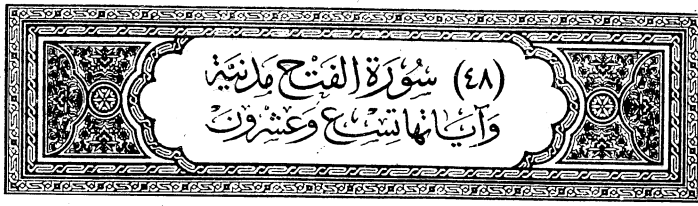 (٤٨) سُورَةُ الفَتْحِ مَدَنيَّة
وَآيَاتهَا تِسْعٌ وَعِشْرُونَ